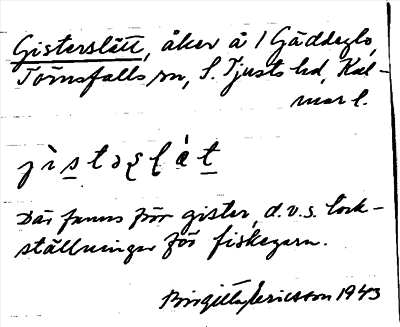 Gisterslätt, åker å 1 Gäddeglo,
Törnsfalls sn, S. Tjusts hd, Kal-
mar l.
jìstəṣḷát
Där fanns förr gister, d.v.s. tork-
ställningar för fiskegarn.
Birgitta Ericsson 1943